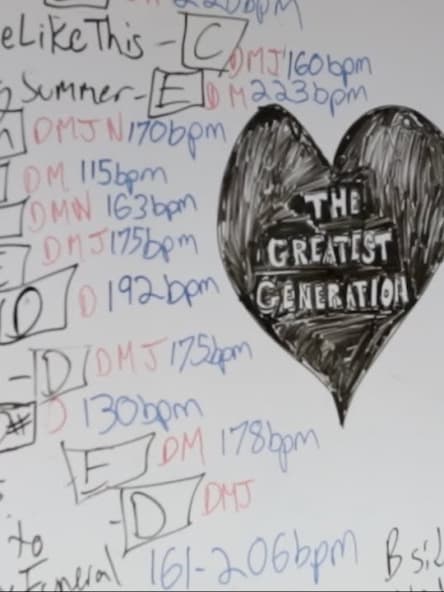 220bpm
eLikeThis - C DMJ 160bpm
Summer - E DM 223bpm
DMJN 170bpm
DM 115bpm
DMN 163bpm
DMJ 175bpm
D D 192bpm
- D DMJ 175bpm
# D 130bpm
E DM 178bpm
- D DMJ
to
Funeral 161-206bpm
B sid
THE
GREATEST
GENERATION